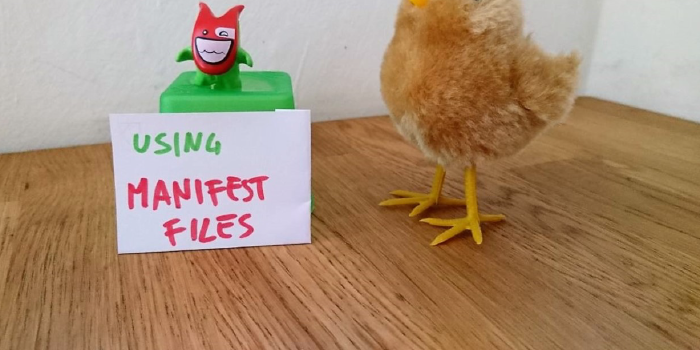 USING
MANIFEST
FILES